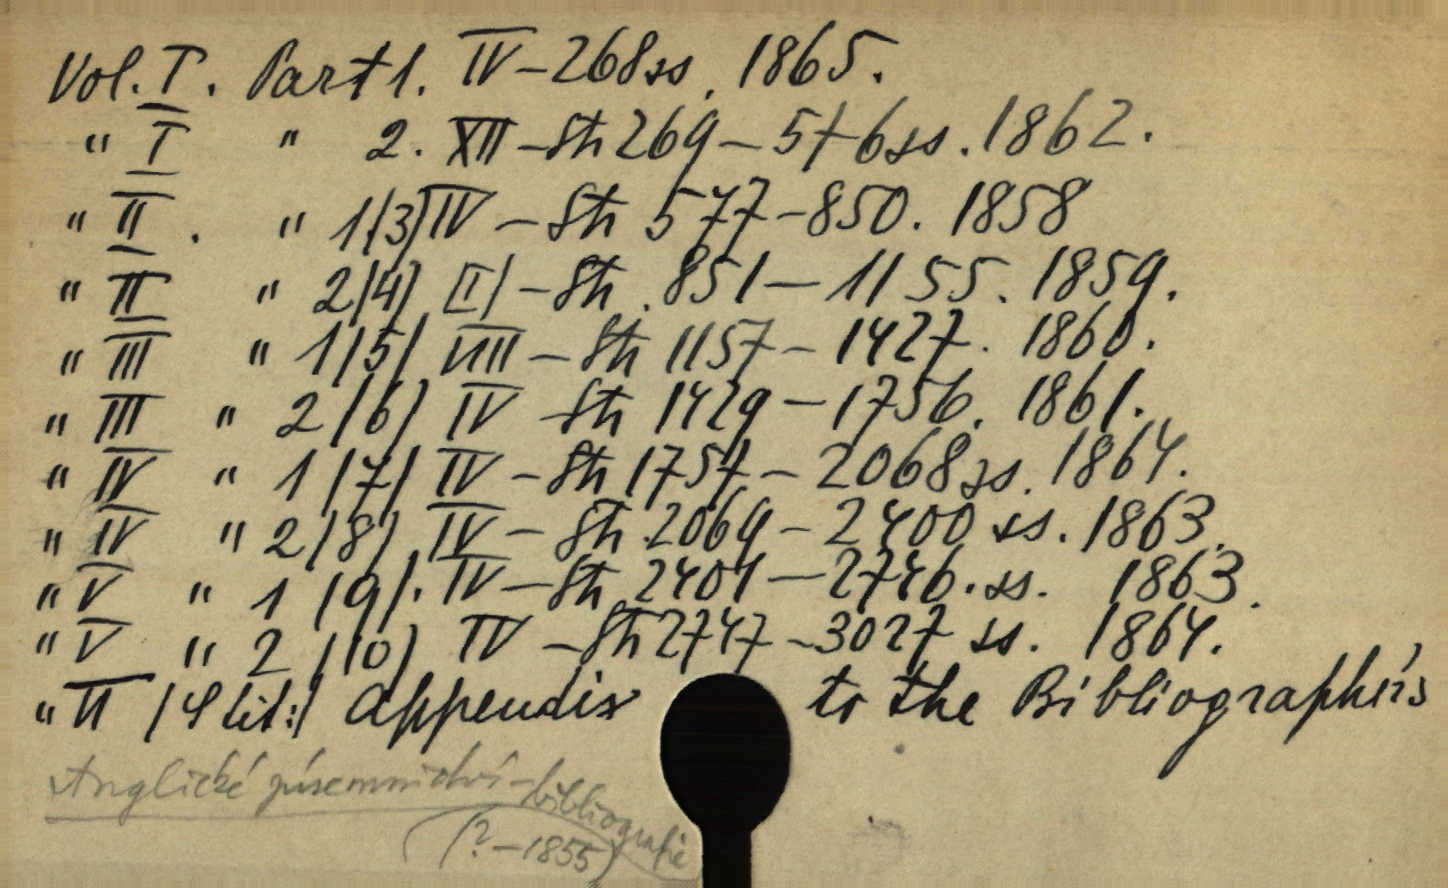 Vol. I. Part 1. IV-268ss, 1865.
" I " 2. XII-Sth 269-576ss. 1862.
" II. " 1/3/ IV-Sth 577-850. 1858
" II " 2/4/ [I]/-Sth. 851-1155. 1859.
" III " 1/5/ VIII-Sth 1157-1427. 1860.
" III " 2/6/ IV-Sth 1429-1756. 1861.
" IV " 1/7/ IV-Sth 1757-2068ss. 1864.
" IV " 2/8/ IV-Sth 2069-2400 ss. 1863.
" V " 1/9/. IV-Sth 2401-2746. ss. 1863.
" V " 2/10/ IV-Sth 2747-3027 ss. 1864.
" / lit:/ Appendix to the Bibliographer's
Anglické písemnictví-bibliografie
(?-1855)